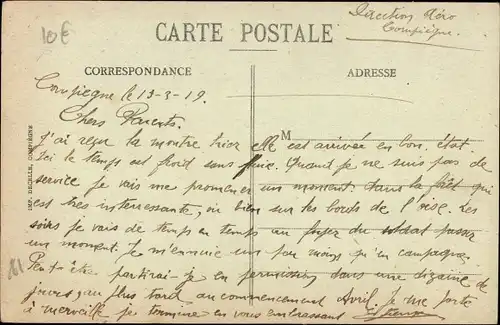 10€
CARTE POSTALE
Direction Aéro
Compiègne.
CORRESPONDANCE
ADRESSE
Compiegne le 13-3-19.
Chers Parents.
M
J'ai reçu la montre hier elle est arrivée en bon état.
Ici le temps est froid sans pluie. Quand je ne suis pas de
service je vais me promener un moment dans la forêt qui
est très interessante, ou bien sur les bords de l'oise. Les
soirs je vais de temps en temps au foyer du soldat passer
un moment. Je m'ennuie un peu moins qu'en campagne.
Peut être partirai-je en permission dans une dizaine de
jours au plus tard au commencement Avril. Je me porte
à merveille je termine en vous embrassant Etienne
IMP. DECELLE, COMPIÈGNE